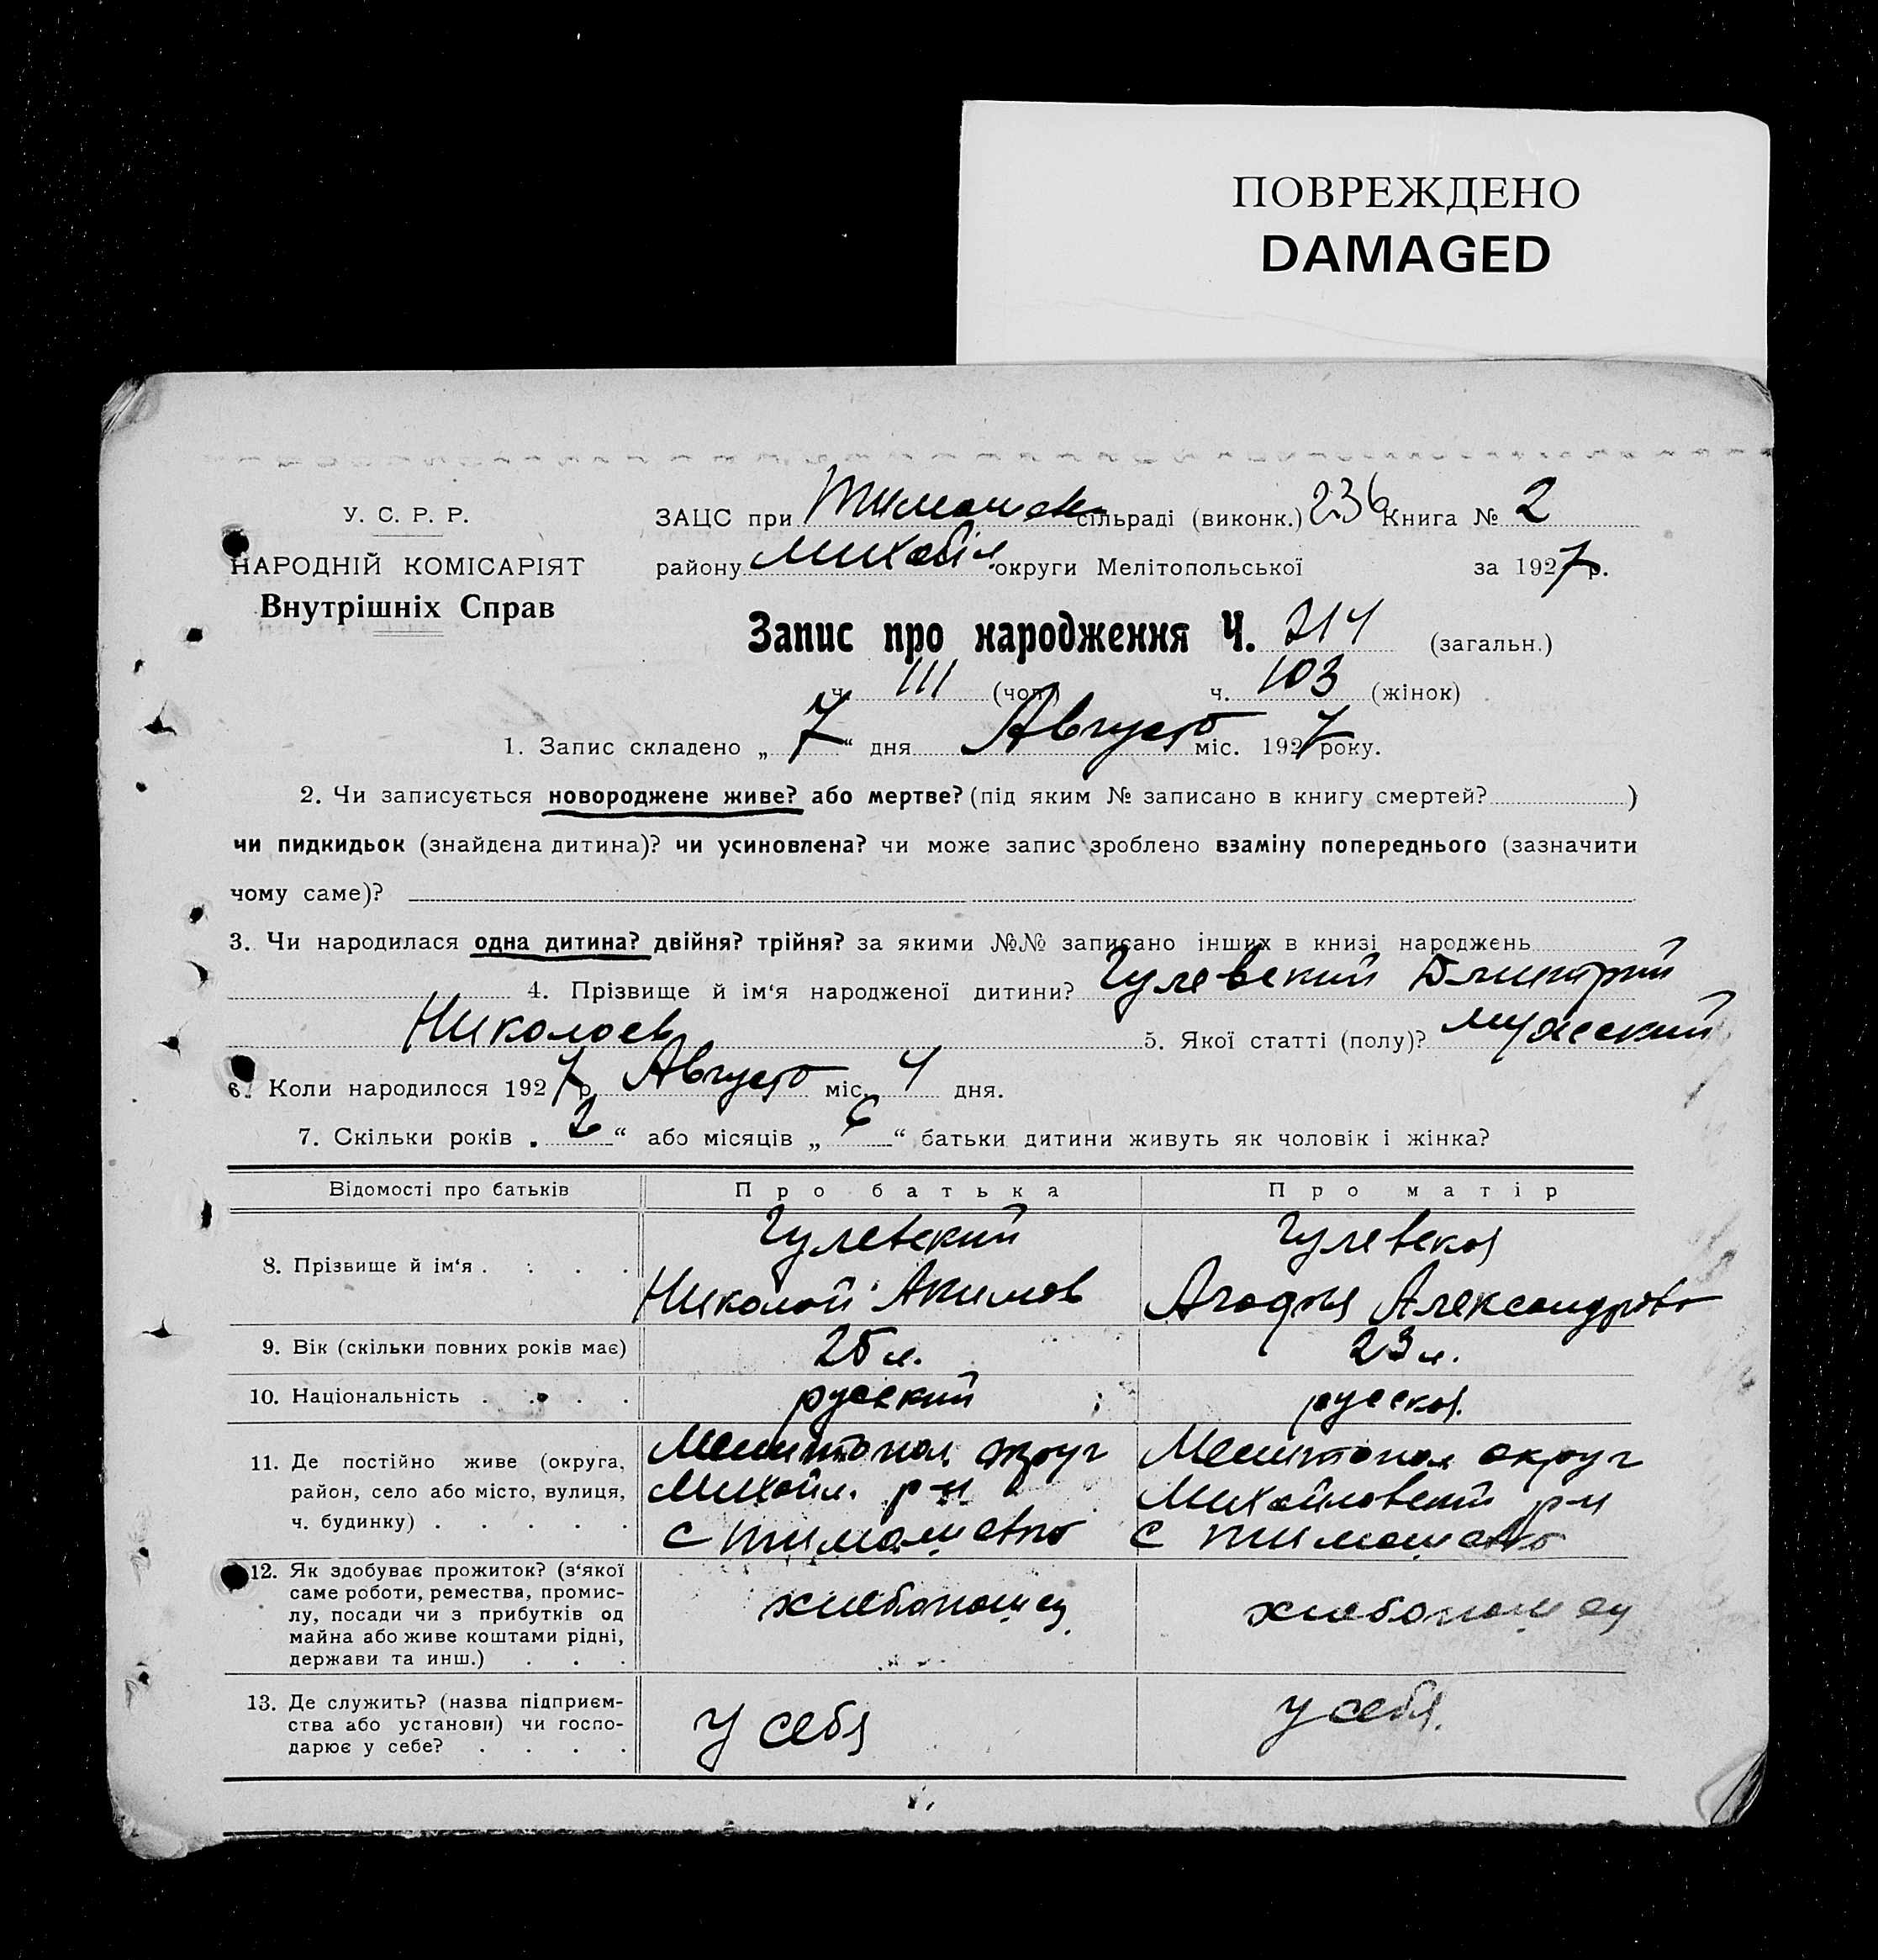 ПОВРЕЖДЕНО
DAMAGED
У. С. Р. Р.
НАРОДНІЙ КОМІСАРІЯТ
Внутрішніх Справ
ЗАЦС при Тимошев сільраді (виконк.) 236 Книга № 2
району Михайл. округи Мелітопольської за 1927 р.
Запис про народження Ч. 214 (загальн.)
ч. 111 (чол.) ч. 103 (жінок)
1. Запис складено „ 7 “ дня Августа міс. 1927 року.
2. Чи записується новороджене живе? або мертве? (під яким № записано в книгу смертей? )
чи пидкидьок (знайдена дитина)? чи усиновлена? чи може запис зроблено взаміну попереднього (зазначити
чому саме)?
3. Чи народилася одна дитина? двійня? трійня? за якими №№ записано інших в книзі народжень
4. Прізвище й ім‘я народженої дитини? Гулевский Дмитрий
Николаев 5. Якої статті (полу)? мужеский
6. Коли народилося 1927 р. Августа міс. 4 дня.
7. Скільки років „ 2 “ або місяців „ 6 “ батьки дитини живуть як чоловік і жінка?
Відомості про батьків Про батька Про матір
8. Прізвище й ім‘я . . . . Гулевский Гулевская
Николай Акимов Агафья Александров
9. Вік (скільки повних років має) 25 л. 23 л.
10. Національність . . . . русский русская
11. Де постійно живе (округа, район, село або місто, вулиця, ч. будинку) . . . . .
Мелитопол округ Мелитопол округ
Михайл. р-н Михайловский р-н
с Тимошевка с Тимошевка
12. Як здобуває прожиток? (з‘якої саме роботи, ремества, промислу, посади чи з прибутків од майна або живе коштами рідні, держави та инш.) . . . хлебопашец хлебопашец
13. Де служить? (назва підприємства або установи) чи господарює у себе? . . . . у себя у себя.